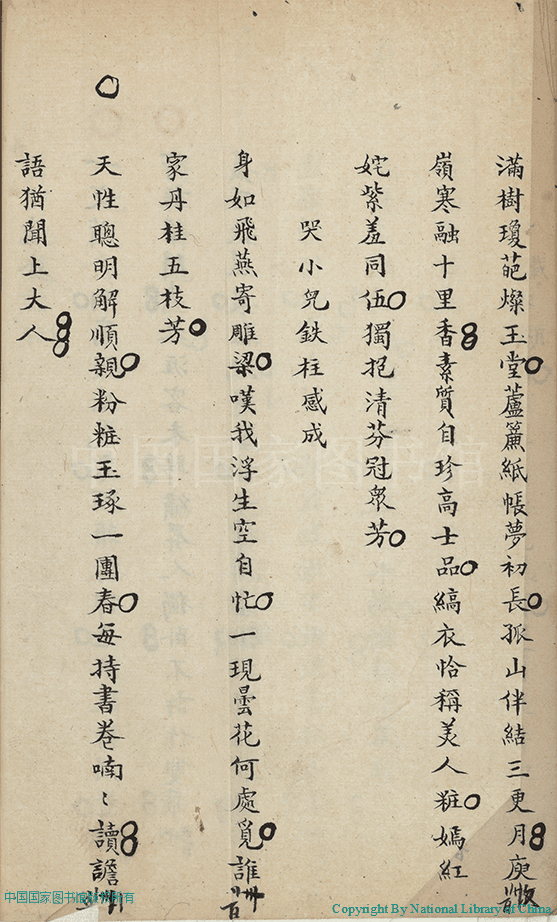 滿樹瓊葩燦玉堂蘆簾紙帳夢初長孤山伴結三更月庾
嶺寒融十里香素質自珍高士品縞衣恰稱美人粧嫣紅
姹紫羞同伍獨抱清芬冠衆芳
哭小兒鉄柱感成
身如飛燕寄雕梁嘆我浮生空自忙一現曇花何處覓誰
家丹桂五枝芳
天性聰明解順親粉粧玉琢一團春每持書卷喃〻讀譫
語猶聞上大人
中国国家图书馆
中国国家图书馆版权所有
Copyright By National Library of China